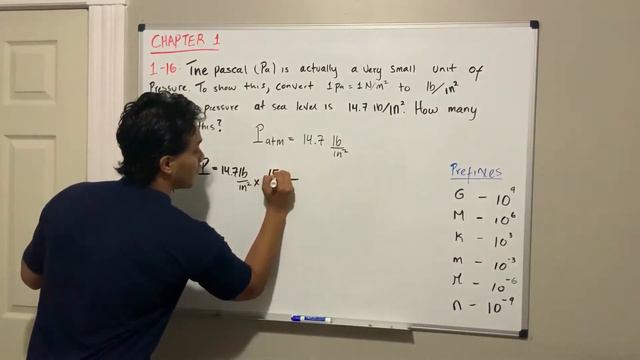 CHAPTER 1
1-16. The pascal (Pa) is actually a very small unit of
Pressure. To show this, convert 1 pa = 1 N/m² to lb/in²
pressure at sea level is 14.7 lb/in². How many
this?
Patm = 14.7 lb/in²
P = 14.7 lb/in² ×
Prefixes
G - 10⁹
M - 10⁶
K - 10³
m - 10⁻³
M - 10⁻⁶
n - 10⁻⁹